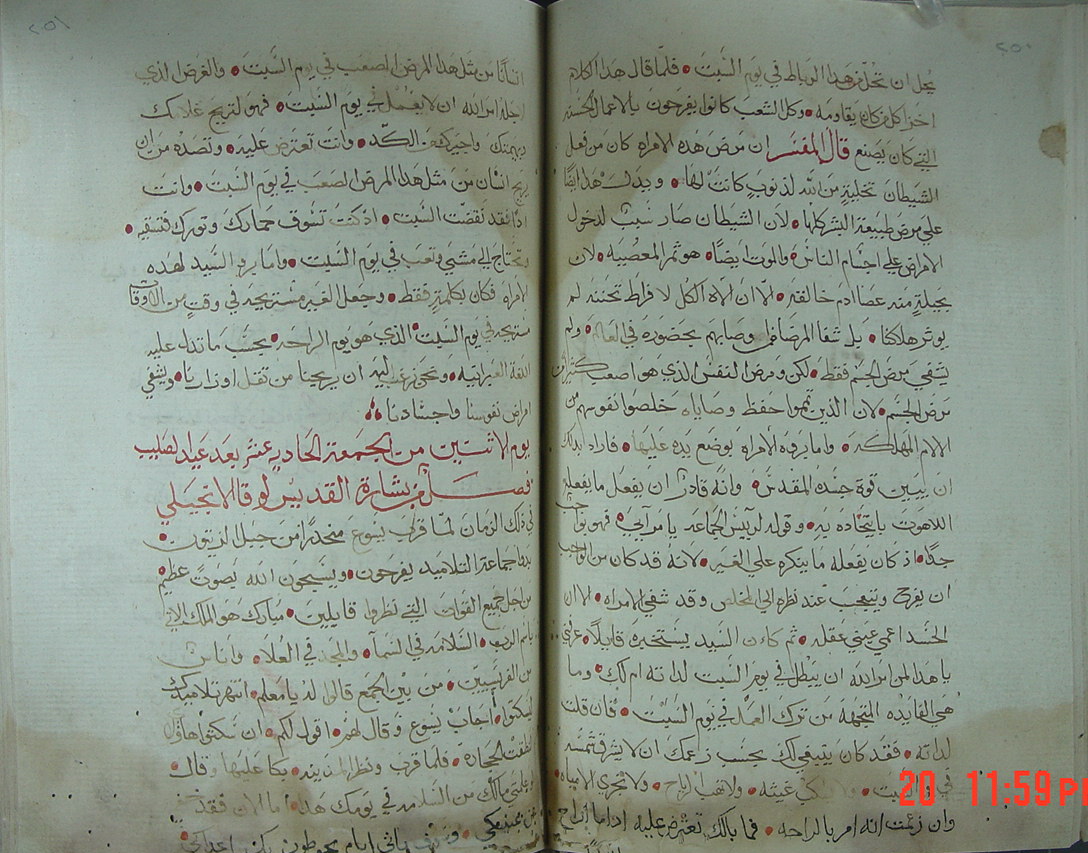 ٢٥٠
يحل ان تحل من هذا الرباط في يوم السبت • فلما قال هذا الكلام
اخزا كل من كان يقاومه • وكل الشعب كانوا يفرحون بالاعمال الحسنه
التي كان يصنع قال المفسر ان مرض هذه الامراه كان من فعل
الشيطان بتخلية من الله لذنوب كانت لها • ويدل هذا ايضا
علي مرض طبيعة البشر كلها • لان الشيطان صار سبب لدخول
الامراض علي اجسام الناس • والموت ايضا • هو ثمر المعصيه • لان
ادم خالقه • الا ان الاه الكل لافراط تحننه لم
يوثر هلاكنا • بل شفا المرضا وصابهم بحضوره في العالم • ولم
يشفي مرض الجسم فقط • لكن ومرض النفس الذي هو اصعب كثيرا من
مرض الجسم • لان الذين تمموا حفظ وصاياه خلصوا نفوسهم من
الالام المهلكه • واما بروه الامراه بوضع يده عليها • فاراد بذلك
ان يبين قوة جسده المقدس • وانه قادر ان يفعل ما يفعله
اللاهوت باتحاده به • وقوله لرييس الجماعه يا مرآيي • فهو
جدا • اذ كان يفعله ما ينكره علي الغير • لانه قد كان من الواجب
ان يفرح ويتعجب عند نظره الي المخلص وقد شفي الامراه • الا ان
الحسد اعمي عيني عقله • ثم كان السيد يستخبره قايلا • عرفني
يا هذا لمن امر الله ان يبطل في يوم السبت لذاته ام لك • وما
هي الفايده المتجهه من ترك العمل في يوم السبت • فان قلت
لذاته • فقد كان ينبغي لك بحسب زعمك ان لا يشرق شمسه
في السبت • غيثه • ولا تهب ارياح • ولا تجري الامياه •
وان زعمت انه امر بالراحه • فما بالك تعترض عليه اذا ما اراح
٢٥١
انسانا من مثل هذا المرض الصعب في يوم السبت • والغرض الذي
اجله امر الله ان لا يعمل في يوم السبت • فهو لتريح غلامك
وبهيمتك واجيرك من الكد • وانت تعترض عليه • وتصده من ان
يريح انسان من مثل هذا المرض الصعب في يوم السبت • وانت
اذا فقد نقضت السبت • اذ كنت تسوق حمارك وثورك فتسقيه •
وتحتاج الي مشي وتعب في يوم السبت • واما برو السيد لهذه
الامراه فكان بكلمة فقط • وجعل الغير مستريحه في وقت من الاوقات
مستريحه في يوم السبت الذي هو يوم الراحه • بحسب ما تدل عليه
اللغة العبرانيه • ونحن نرغب اليه ان يريحنا من ثقل اوزارنا • ويشفي
امراض نفوسنا واجسادنا
يوم الاثنين من الجمعة الحاديه عشر بعد عيد الصليب
فصل من بشارة القديس لوقا الانجيلي
في ذلك الزمان لما قرب يسوع منحدرا من جبل الزيتون •
بدوا جماعة التلاميذ يفرحون • ويسبحون الله بصوت عظيم
من اجل جميع القوات التي نظروا قايلين • مبارك هو الملك الاتي
باسم الرب • السلامه في السما • والمجد في العلا • واناس
من الفريسيين • من بين الجمع قالوا له يا معلم • انتهر تلاميذك
ليسكتوا • اجاب يسوع وقال لهم • اقول لكم • ان سكتوا هاؤلا
نطقت الحجاره • فلما قرب ونظر المدينه • بكا عليها وقال
مالك من السلامه في يومك هذا • اما الان فقد
عن عينيكي • ياتي ايام يحوطون بكي اعداكي
20 11:59 P